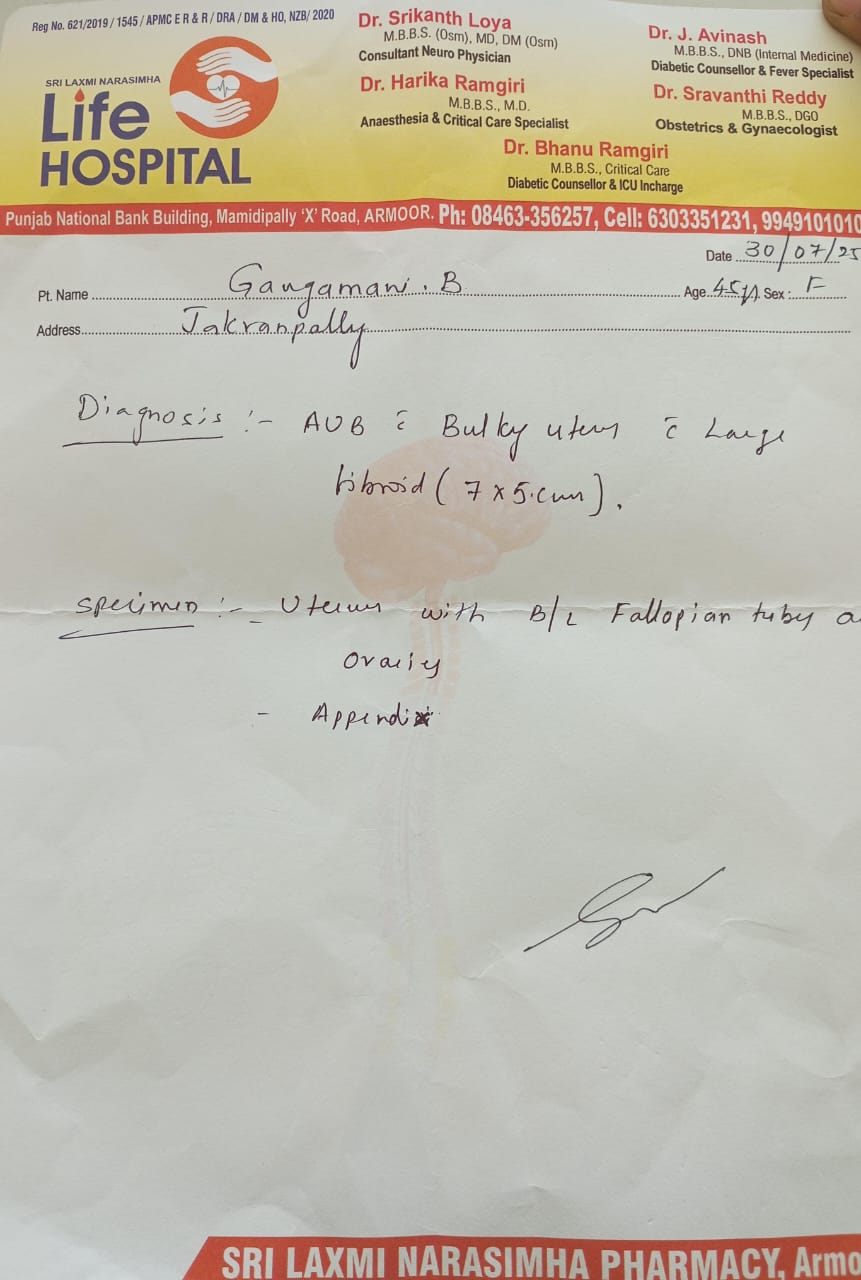 Reg No. 621/2019 / 1545 / APMC E R & R / DRA / DM & HO, NZB/ 2020
SRI LAXMI NARASIMHA
Life
HOSPITAL
Dr. Srikanth Loya
M.B.B.S. (Osm), MD, DM (Osm)
Consultant Neuro Physician
Dr. Harika Ramgiri
M.B.B.S., M.D.
Anaesthesia & Critical Care Specialist
Dr. J. Avinash
M.B.B.S., DNB (Internal Medicine)
Diabetic Counsellor & Fever Specialist
Dr. Sravanthi Reddy
M.B.B.S., DGO
Obstetrics & Gynaecologist
Dr. Bhanu Ramgiri
M.B.B.S., Critical Care
Diabetic Counsellor & ICU Incharge
Punjab National Bank Building, Mamidipally 'X' Road, ARMOOR. Ph: 08463-356257, Cell: 6303351231, 9949101010
Date 30/07/25
Pt. Name Gangamani. B Age 45y Sex: F
Address Jakranpally
Diagnosis :- AUB c̄ Bulky uterus c̄ Large
fibroid (7 x 5.cm).
Specimen :- Uterus with B/L Fallopian tubes a
ovaries
- Appendix
SRI LAXMI NARASIMHA PHARMACY, Armo